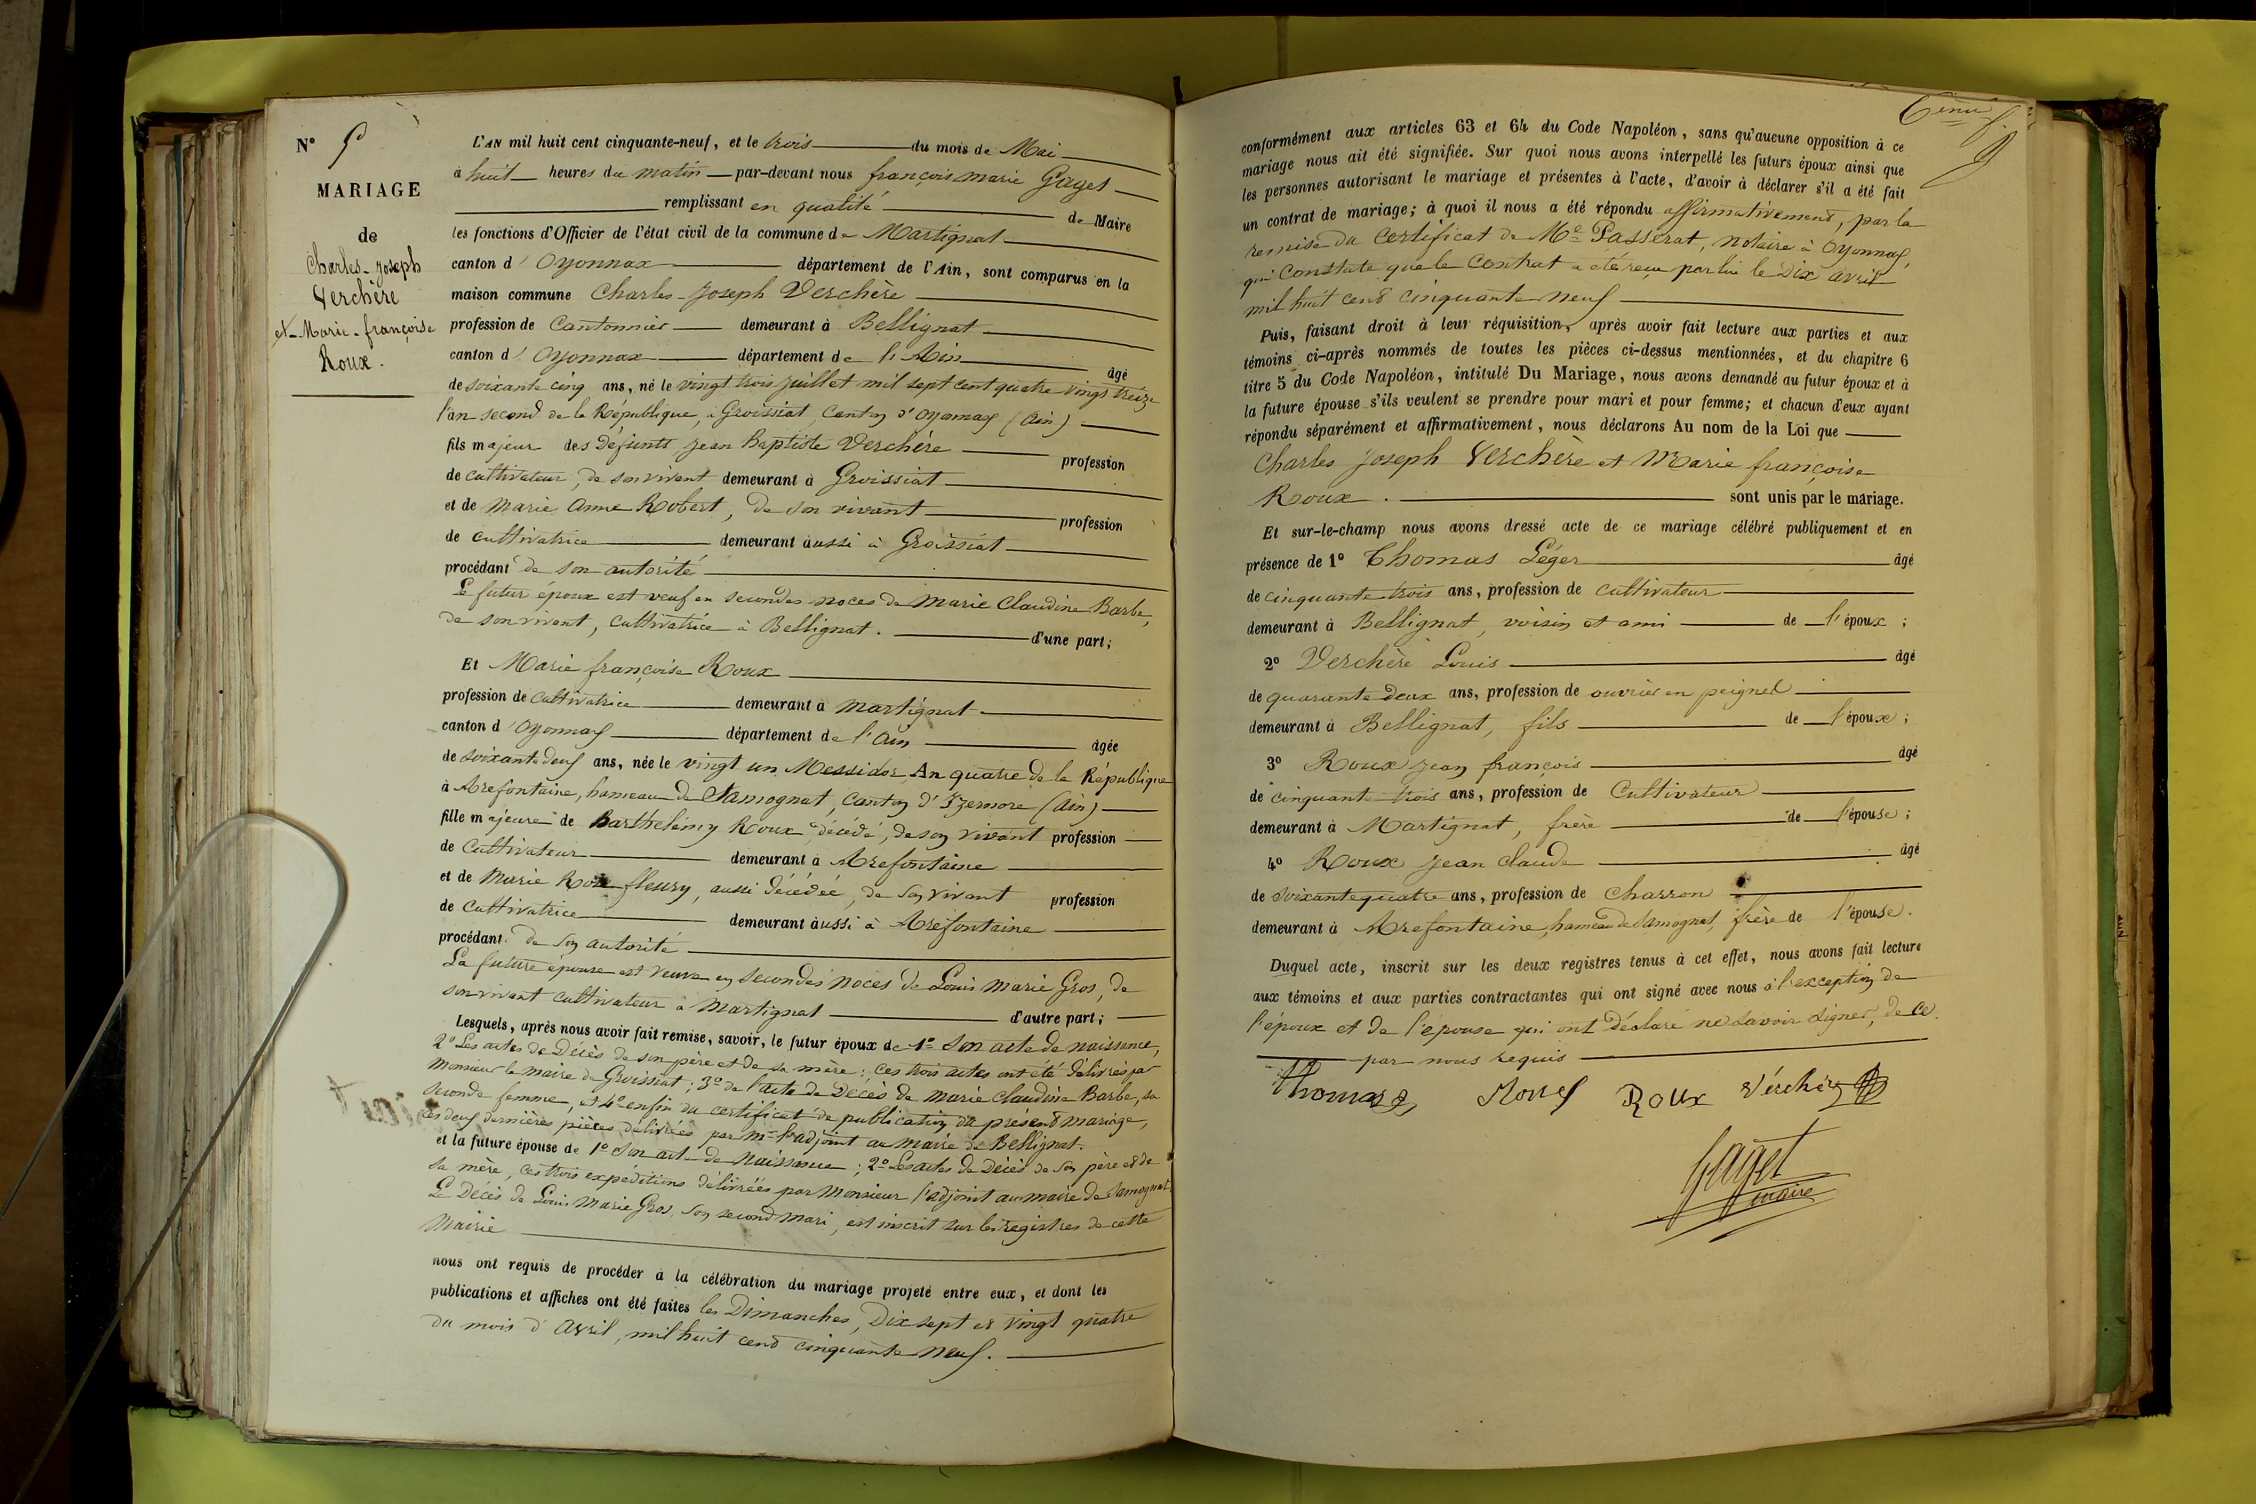 N° 5
MARIAGE
de
Charles-Joseph
Verchère
et Marie-françoise
Roux.
L'AN mil huit cent cinquante-neuf, et le trois du mois de Mai
à huit heures du matin par-devant nous françois marie Gaget
remplissant en qualité de Maire
les fonctions d'Officier de l'état civil de la commune de Martignat
canton d'Oyonnax département de l'Ain, sont comparus en la
maison commune Charles-Joseph Verchère
profession de Cantonnier demeurant à Bellignat
canton d'Oyonnax département de l'Ain âgé
de soixante cinq ans, né le vingt trois juillet mil sept cent quatre vingt treize
l'an second de la République, à Groissiat, canton d'Oyonnax (Ain)
fils majeur des défunts Jean Baptiste Verchère profession
de cultivateur, de son vivant demeurant à Groissiat
et de Marie Anne Robert, de son vivant profession
de cultivatrice demeurant aussi à Groissiat
procédant de son autorité
Le futur époux est veuf en secondes noces de Marie Claudine Barbe,
de son vivant, cultivatrice à Bellignat. d'une part;
Et Marie françoise Roux
profession de cultivatrice demeurant à Martignat
canton d'Oyonnax département de l'Ain âgée
de soixante deux ans, née le vingt un Messidor An quatre de la République
à Arefontaine, hameau de Samognat, canton d'Izernore (Ain)
fille majeure de Barthelémy Roux, décédé, de son vivant profession
de Cultivateur demeurant à Arefontaine
et de Marie Rose fleury, aussi décédée, de son vivant profession
de Cultivatrice demeurant aussi à Arefontaine
procédant de son autorité
La future épouse est veuve en secondes noces de Louis Marie Gros, de
son vivant cultivateur à Martignat d'autre part;
Lesquels, après nous avoir fait remise, savoir, le futur époux de 1° Son acte de naissance,
2° Les actes de Décès de son père et de sa mère; ces trois actes ont été délivrés par
Monsieur le maire de Groissiat; 3° de l'acte de Décès de Marie Claudine Barbe, sa
seconde femme, et 4° enfin du certificat de publication du présent mariage,
ces deux dernières pièces délivrées par Mr l'adjoint au maire de Bellignat.
et la future épouse de 1° Son acte de Naissance; 2° Les actes de Décès de son père et de
sa mère, ces trois expéditions délivrées par Monsieur l'adjoint au maire de Samognat.
Le Décès de Louis Marie Gros, son second mari, est inscrit sur les registres de cette
Mairie
nous ont requis de procéder à la célébration du mariage projeté entre eux, et dont les
publications et affiches ont été faites les Dimanches, Dix sept et vingt quatre
du mois d'avril, mil huit cent cinquante neuf.
conformément aux articles 63 et 64 du Code Napoléon, sans qu'aucune opposition à ce
mariage nous ait été signifiée. Sur quoi nous avons interpellé les futurs époux ainsi que
les personnes autorisant le mariage et présentes à l'acte, d'avoir à déclarer s'il a été fait
un contrat de mariage; à quoi il nous a été répondu affirmativement, par la
remise du certificat de Me Passerat, notaire à Oyonnax,
qui Constate que le Contrat a été reçu par lui le Dix avril
mil huit cent cinquante neuf
Puis, faisant droit à leur réquisition, après avoir fait lecture aux parties et aux
témoins ci-après nommés de toutes les pièces ci-dessus mentionnées, et du chapitre 6
titre 5 du Code Napoléon, intitulé Du Mariage, nous avons demandé au futur époux et à
la future épouse s'ils veulent se prendre pour mari et pour femme; et chacun d'eux ayant
répondu séparément et affirmativement, nous déclarons Au nom de la Loi que
Charles Joseph Verchère et Marie françoise
Roux. sont unis par le mariage.
Et sur-le-champ nous avons dressé acte de ce mariage célébré publiquement et en
présence de 1° Thomas Léger âgé
de cinquante trois ans, profession de cultivateur
demeurant à Bellignat, voisin et ami de l'époux;
2° Verchère Louis âgé
de quarante deux ans, profession de ouvrier en peignes
demeurant à Bellignat, fils de l'époux;
3° Roux Jean françois âgé
de cinquante trois ans, profession de Cultivateur
demeurant à Martignat, frère de l'épouse;
4° Roux Jean Claude âgé
de soixante quatre ans, profession de Charron
demeurant à Arefontaine, hameau de Samognat, frère de l'épouse.
Duquel acte, inscrit sur les deux registres tenus à cet effet, nous avons fait lecture
aux témoins et aux parties contractantes qui ont signé avec nous à l'exception de
l'époux et de l'épouse qui ont déclaré ne savoir signer, de ce
par nous requis
Thomas Roux Verchère
Gaget
maire